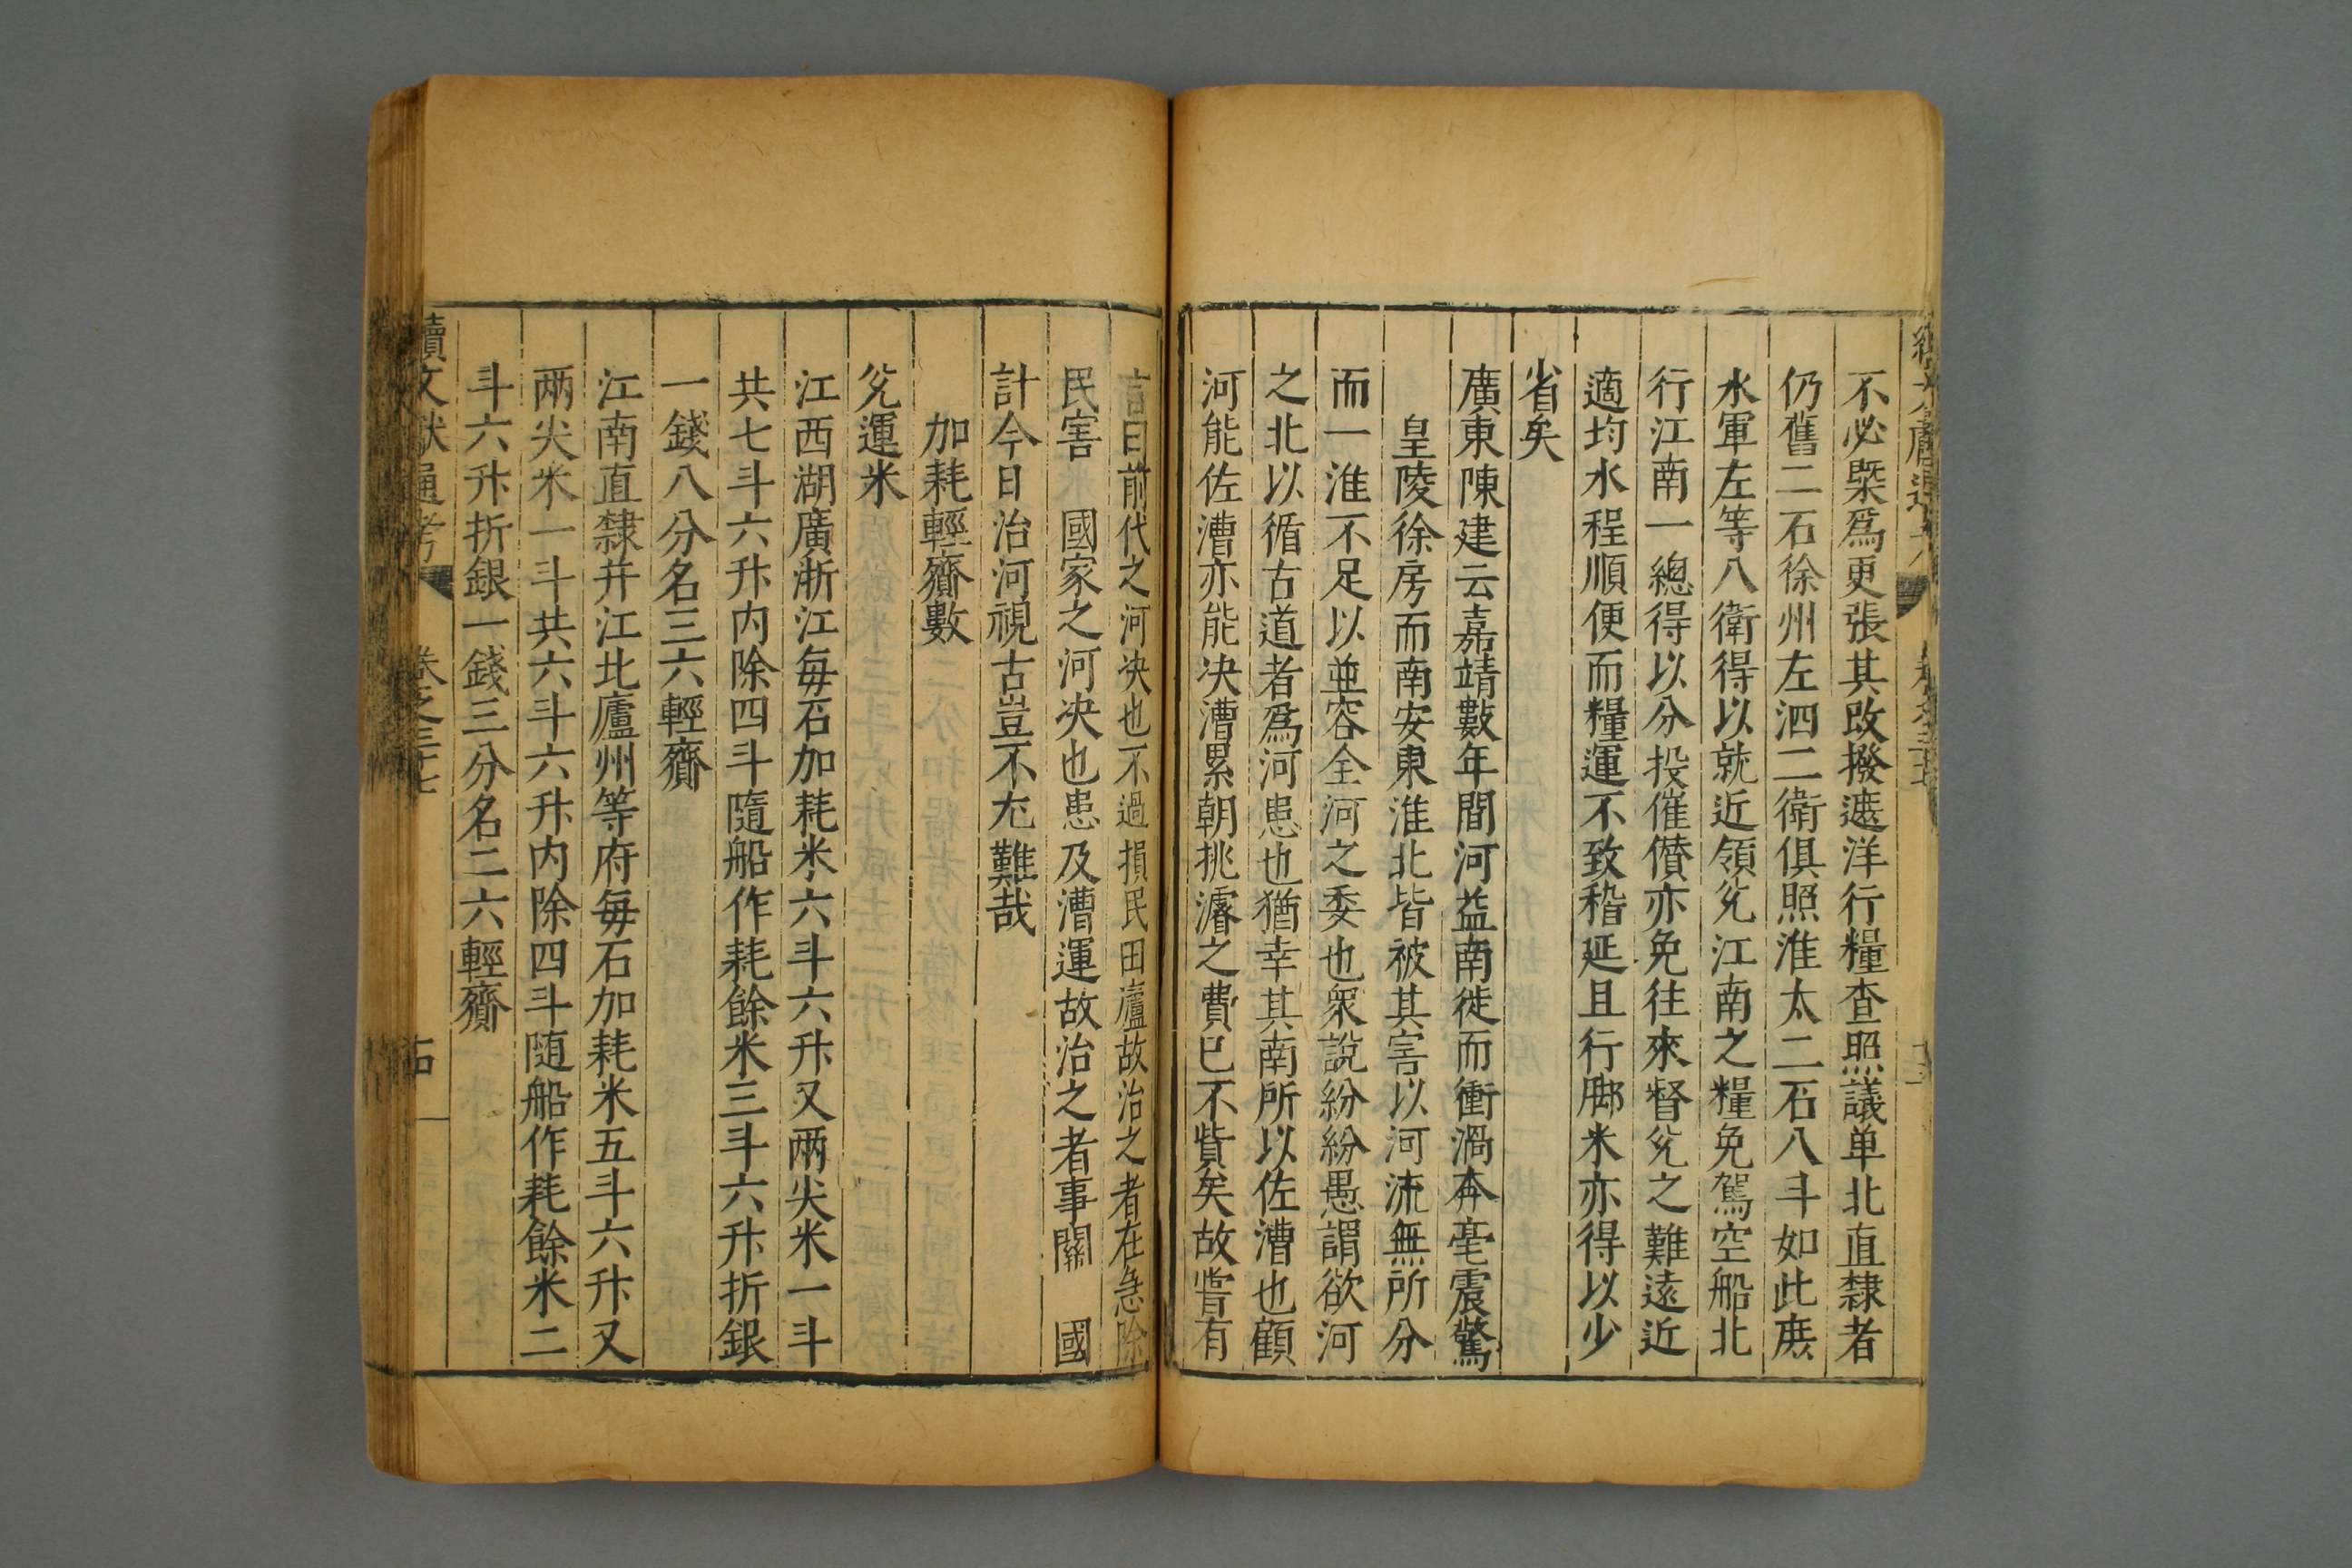 不必槩爲更張其改撥遮洋行糧查照議单北直隸者
仍舊二石徐州左泗二衛俱照淮太二石八斗如此庻
水軍左等八衛得以就近領兊江南之糧免駕空船北
行江南一總得以分投催儧亦免往來督兊之難遠近
適均水程順便而糧運不致稽延且行脚米亦得以少
省矣
廣東陳建云嘉靖數年間河益南徙而衝渦奔亳震驚
皇陵徐房而南安東淮北皆被其害以河流無所分
而一淮不足以並容全河之委也衆說紛紛愚謂欲河
之北以循古道者爲河患也猶幸其南所以佐漕也顧
河能佐漕亦能决漕累朝挑濬之費已不貲矣故嘗有
言曰前代之河决也不過損民田廬故治之者在急除
民害 國家之河决也患及漕運故治之者事關 國
計今日治河視古豈不尤難哉
加耗輕齎數
兊運米
江西湖廣浙江每石加耗米六斗六升又兩尖米一斗
共七斗六升内除四斗隨船作耗餘米三斗六升折銀
一錢八分名三六輕齎
江南直隸并江北廬州等府每石加耗米五斗六升又
兩尖米一斗共六斗六升内除四斗随船作耗餘米二
斗六升折銀一錢三分名二六輕齎
續文獻通考 卷之三十七